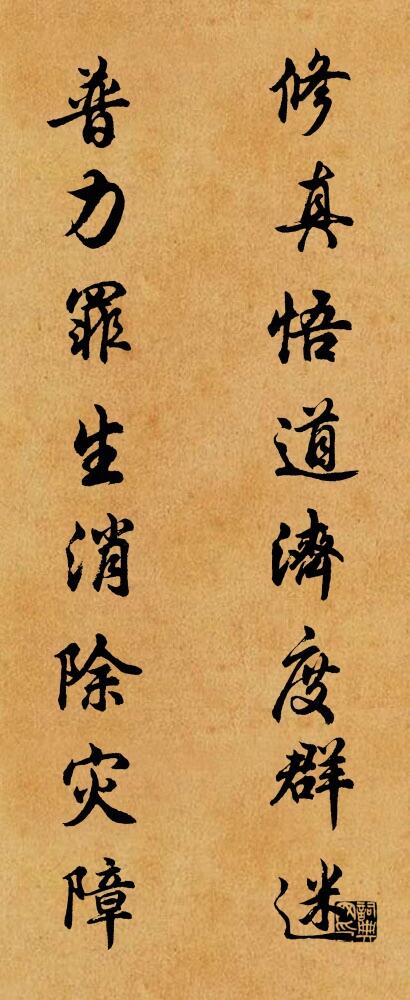 修真悟道濟度群迷
普力罪生消除灾障